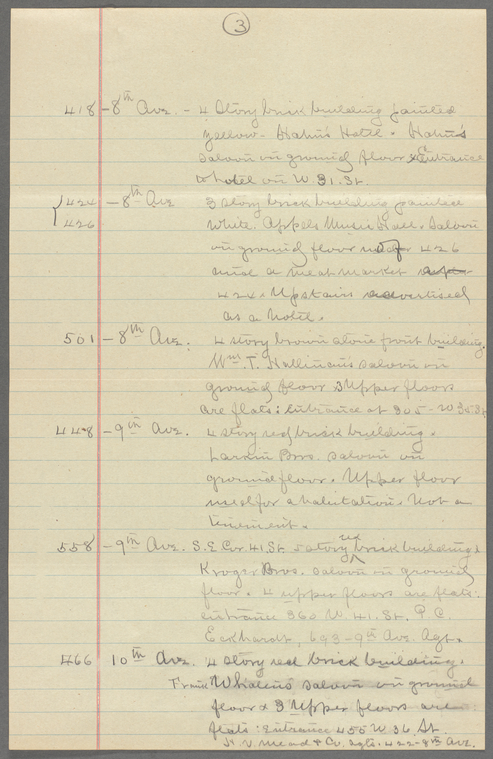 3
418 - 8th Ave. - 4 Story brick building painted
yellow. Hahn's Hotel. Hahn's
saloon on ground floor & Entrance
to hotel on W. 31. St.
424 - 8th Ave 3 story brick building painted
426 White. Appels Music Hall. Saloon
on ground floor of 426
and a meat market
424. Upstairs advertised
as a hotel.
501 - 8th Ave. 4 story brown stone front building.
Wm. T. Hallinan's saloon on
ground floor 3 Upper floors
are flats: entrance at 305 - W 35 St
448 - 9th Ave. 4 story red brick building.
Larkin Bros. saloon on
ground floor. Upper floor
used for habitation. Not a
tenement.
558 - 9th Ave. S.E. Cor. 41. St. 5 story red brick building.
Kroger Bros. saloon on ground
floor. 4 upper floors are flats:
entrance 360 W. 41. St. P.C.
Eckhardt, 693-9th Ave. Agt.
466 10th Ave. 4 story red brick building.
Frank Whalen's saloon on ground
floor & 3 Upper floors are
flats: Entrance 455 W 36 St.
H. V. Mead & Co. agts. 422-8th Ave.